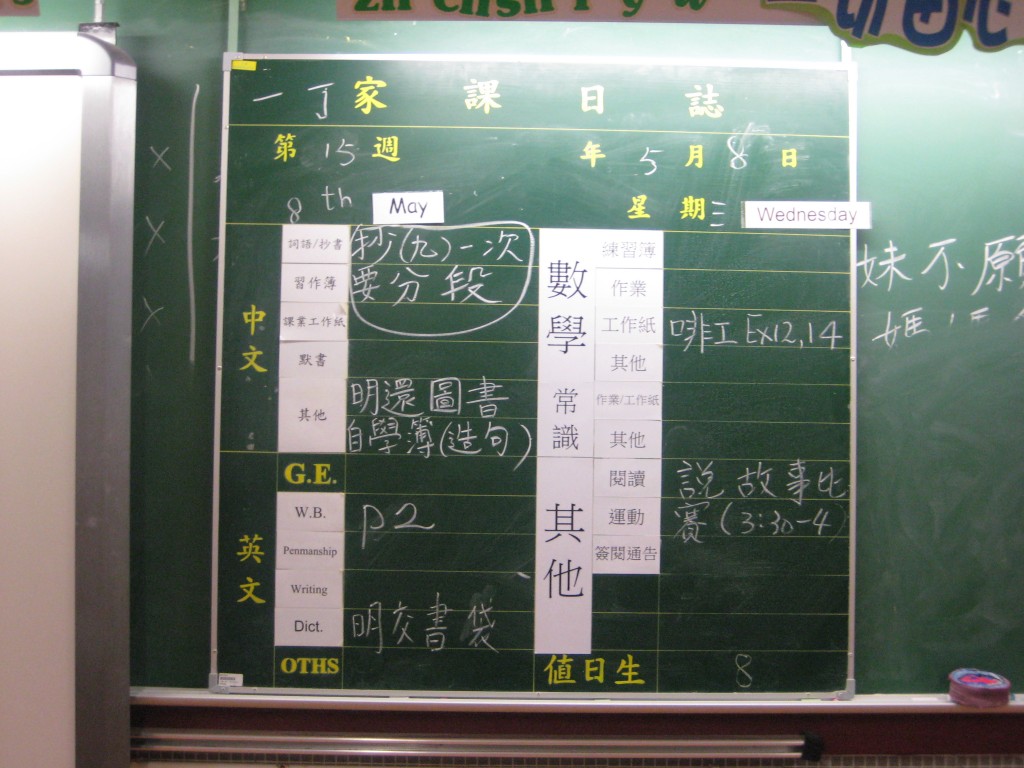 zh ch sh r y w
一丁家課日誌
第15週 年5月8日
8th May 星期三 Wednesday
中文
詞語/抄書 抄(九)一次
習作簿 要分段
課業工作紙
默書
其他 明還圖書
自學簿(造句)
英文
G.E.
W.B. P2
Penmanship
Writing
Dict. 明交書袋
OTHS
數學
練習簿
作業
工作紙 啡工 Ex12,14
其他
常識
作業/工作紙
其他
其他
閱讀 說故事比
運動 賽(3:30-4)
簽閱通告
值日生 8
妹不願